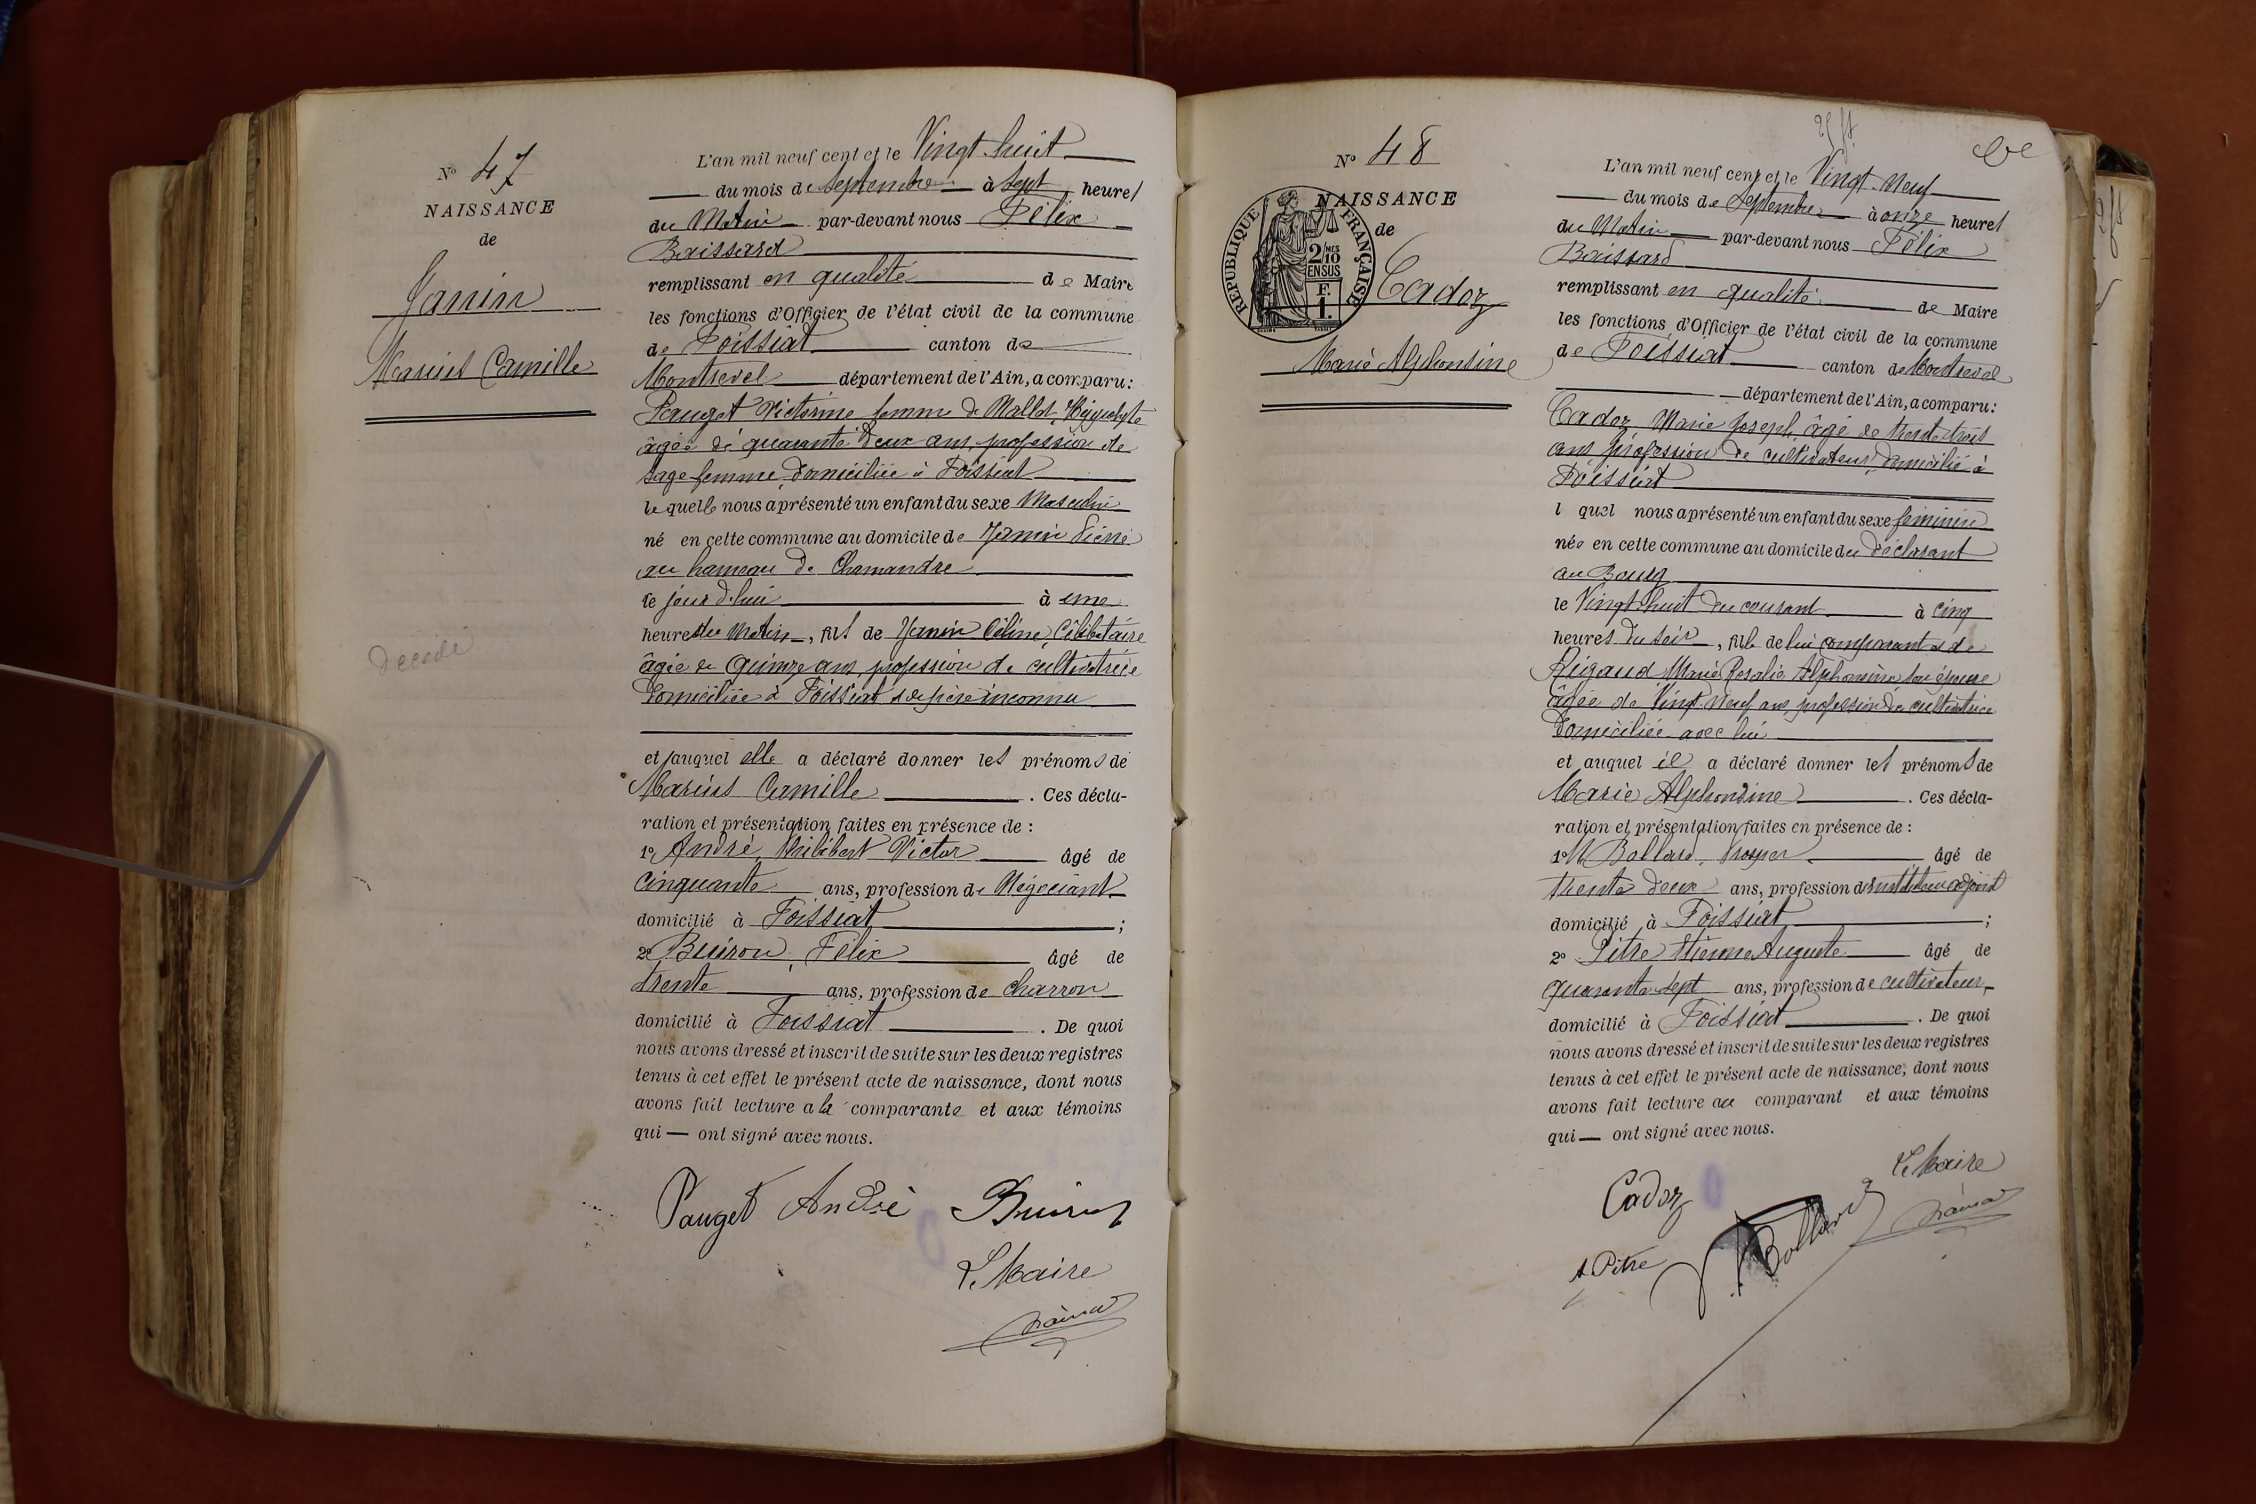 N° 47
NAISSANCE
de
Janin
Marius Camille
décédé
L'an mil neuf cent et le Vingt huit
du mois de Septembre à Sept heures
du Matin par-devant nous Félix
Baissard
remplissant en qualité de Maire
les fonctions d'Officier de l'état civil de la commune
de Foissiat canton de
Montrevel département de l'Ain, a comparu :
Pauget Victorine femme de Mallet, Hyppolyte
âgée de quarante deux ans, profession de
sage-femme, domiciliée à Foissiat
laquelle nous a présenté un enfant du sexe Masculin
né en cette commune au domicile de Janin Pierre
au hameau de Chamandre
le jour d'hui à une
heure du Matin, fils de Janin Céline, Célibataire
âgée de Quinze ans, profession de cultivatrice
domiciliée à Foissiat & de père inconnu
et auquel elle a déclaré donner les prénoms de
Marius Camille. Ces décla-
ration et présentation faites en présence de :
1° André, Philibert Victor âgé de
cinquante ans, profession de Négociant
domicilié à Foissiat ;
2° Buiron, Félix âgé de
trente ans, profession de charron
domicilié à Foissiat. De quoi
nous avons dressé et inscrit de suite sur les deux registres
tenus à cet effet le présent acte de naissance, dont nous
avons fait lecture a la comparante et aux témoins
qui — ont signé avec nous.
Pauget André Buiron
Le Maire
N° 48
NAISSANCE
de
Cadoz
Marie Alphonsine
RÉPUBLIQUE FRANÇAISE
2/10
EN SUS
F.
1.
L'an mil neuf cent et le Vingt-Neuf
du mois de Septembre à onze heures
du Matin par-devant nous Félix
Baissard
remplissant en qualité de Maire
les fonctions d'Officier de l'état civil de la commune
de Foissiat canton de Montrevel
département de l'Ain, a comparu :
Cadoz Marie Joseph, âgé de trente-trois
ans, profession de cultivateur, domicilié à
Foissiat
lequel nous a présenté un enfant du sexe féminin
née en cette commune au domicile du déclarant
au Bourg
le Vingt huit du courant à cinq
heures du soir, fille de lui comparant & de
Rigaud Marie Rosalie Alphonsine son épouse
âgée de Vingt-Neuf ans, profession de cultivatrice
domiciliée avec lui
et auquel il a déclaré donner les prénoms de
Marie Alphonsine. Ces décla-
ration et présentation faites en présence de :
1° M Bollard, Prosper âgé de
trente deux ans, profession d'instituteur adjoint
domicilié à Foissiat ;
2° Pitre Etienne Auguste âgé de
quarante-sept ans, profession de cultivateur
domicilié à Foissiat. De quoi
nous avons dressé et inscrit de suite sur les deux registres
tenus à cet effet le présent acte de naissance, dont nous
avons fait lecture au comparant et aux témoins
qui — ont signé avec nous.
Le Maire
Cadoz
A. Pitre Bollard